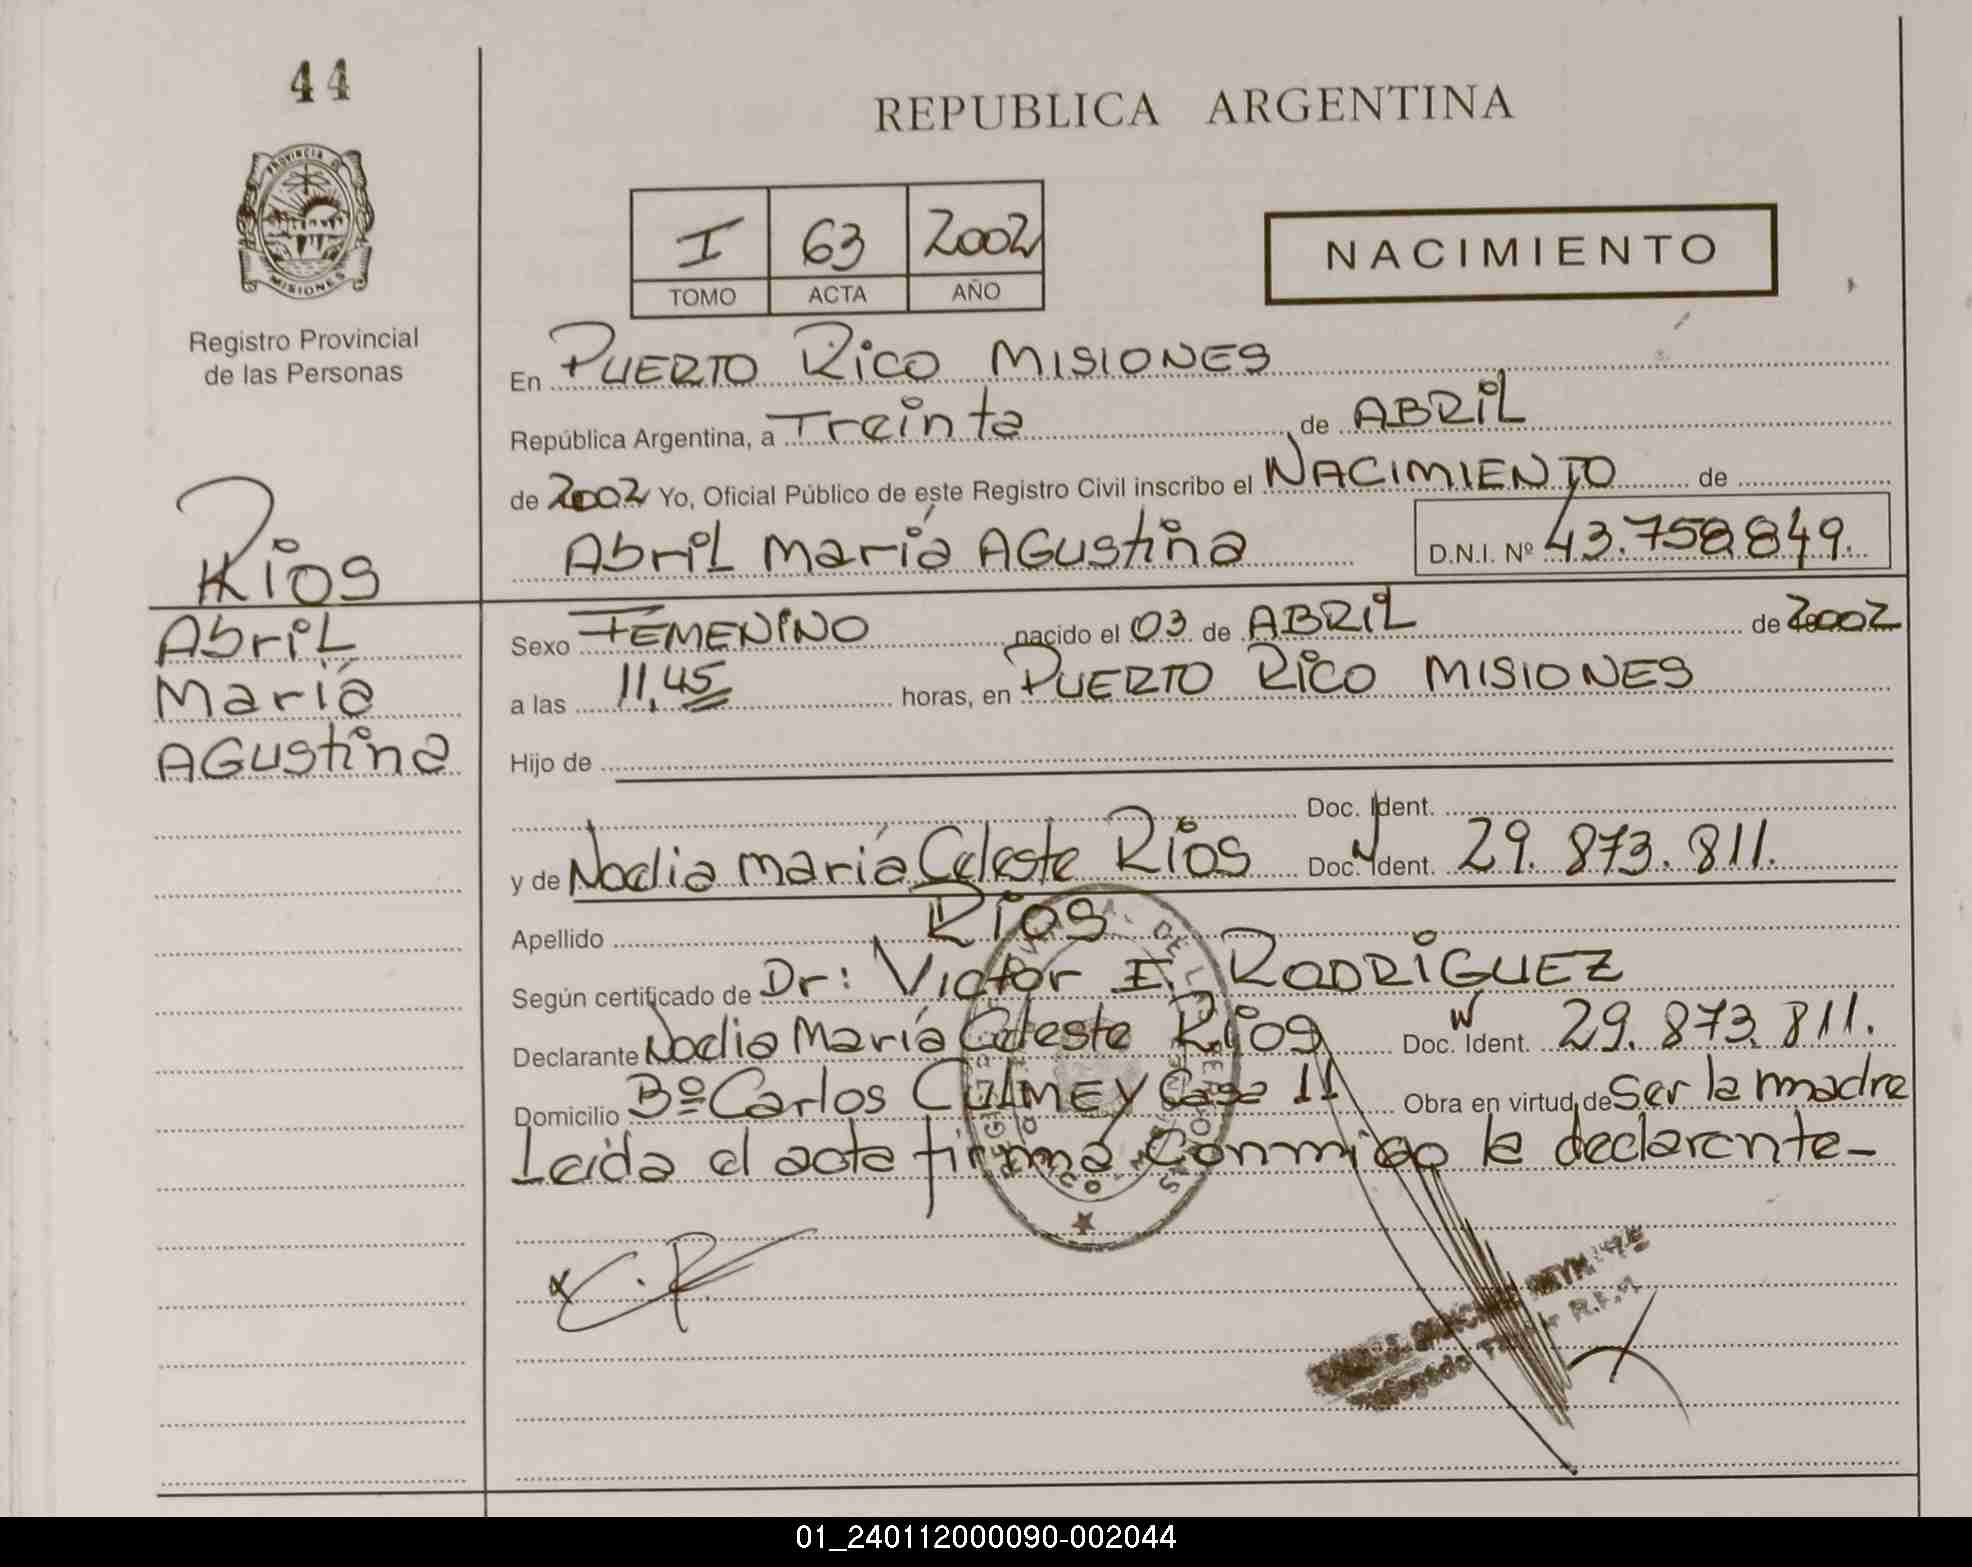 44
REPUBLICA ARGENTINA
PROVINCIA DE
MISIONES
I 63 2002
TOMO ACTA AÑO
NACIMIENTO
Registro Provincial
de las Personas
En PUERTO RICO MISIONES
República Argentina, a Treinta de ABRIL
de 2002 Yo, Oficial Público de este Registro Civil inscribo el NACIMIENTO de
Abril María Agustina D.N.I. Nº 43.758.849.
Ríos
Abril
María
Agustina
Sexo FEMENINO nacido el 03 de ABRIL de 2002
a las 11,45 horas, en PUERTO RICO MISIONES
Hijo de
Doc. Ident.
y de Nadia María Celeste Ríos Doc. Ident. 29.873.811.
Apellido Ríos
Según certificado de Dr: Victor E. RODRIGUEZ
Declarante Nadia María Celeste Ríos Doc. Ident. 29.873.811.
Domicilio Bº Carlos CULMEY Casa 11 Obra en virtud de Ser la madre
Leida el acta firma conmigo la declarante-
C.R.
01_240112000090-002044